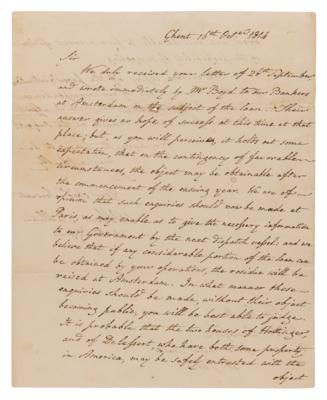 Ghent 16th Octber 1814
Sir
We duly received your letter of 26th September
and wrote immediately by Mr Boyd to our Bankers
at Amsterdam on the subject of the loan. Their
answer gives no hope of success at this time at that
place; but, as you will perceive, it holds out some
expectation, that on the contingency of favorable
circumstances, the object may be obtainable after
the commencement of the ensuing year. We are of
opinion that such enquiries should now be made at
Paris, as may enable us to give the necessary information
to our Government by the next dispatch vessel; and we
believe that if any considerable portion of the loan can
be obtained by your operations, the residue will be
raised at Amsterdam. In what manner these
enquiries should be made, without their object
becoming public, you will be best able to judge.
It is probable that the two houses of Hottinger,
and of Delessert, who have both some property
in America, may be safely entrusted with the
object